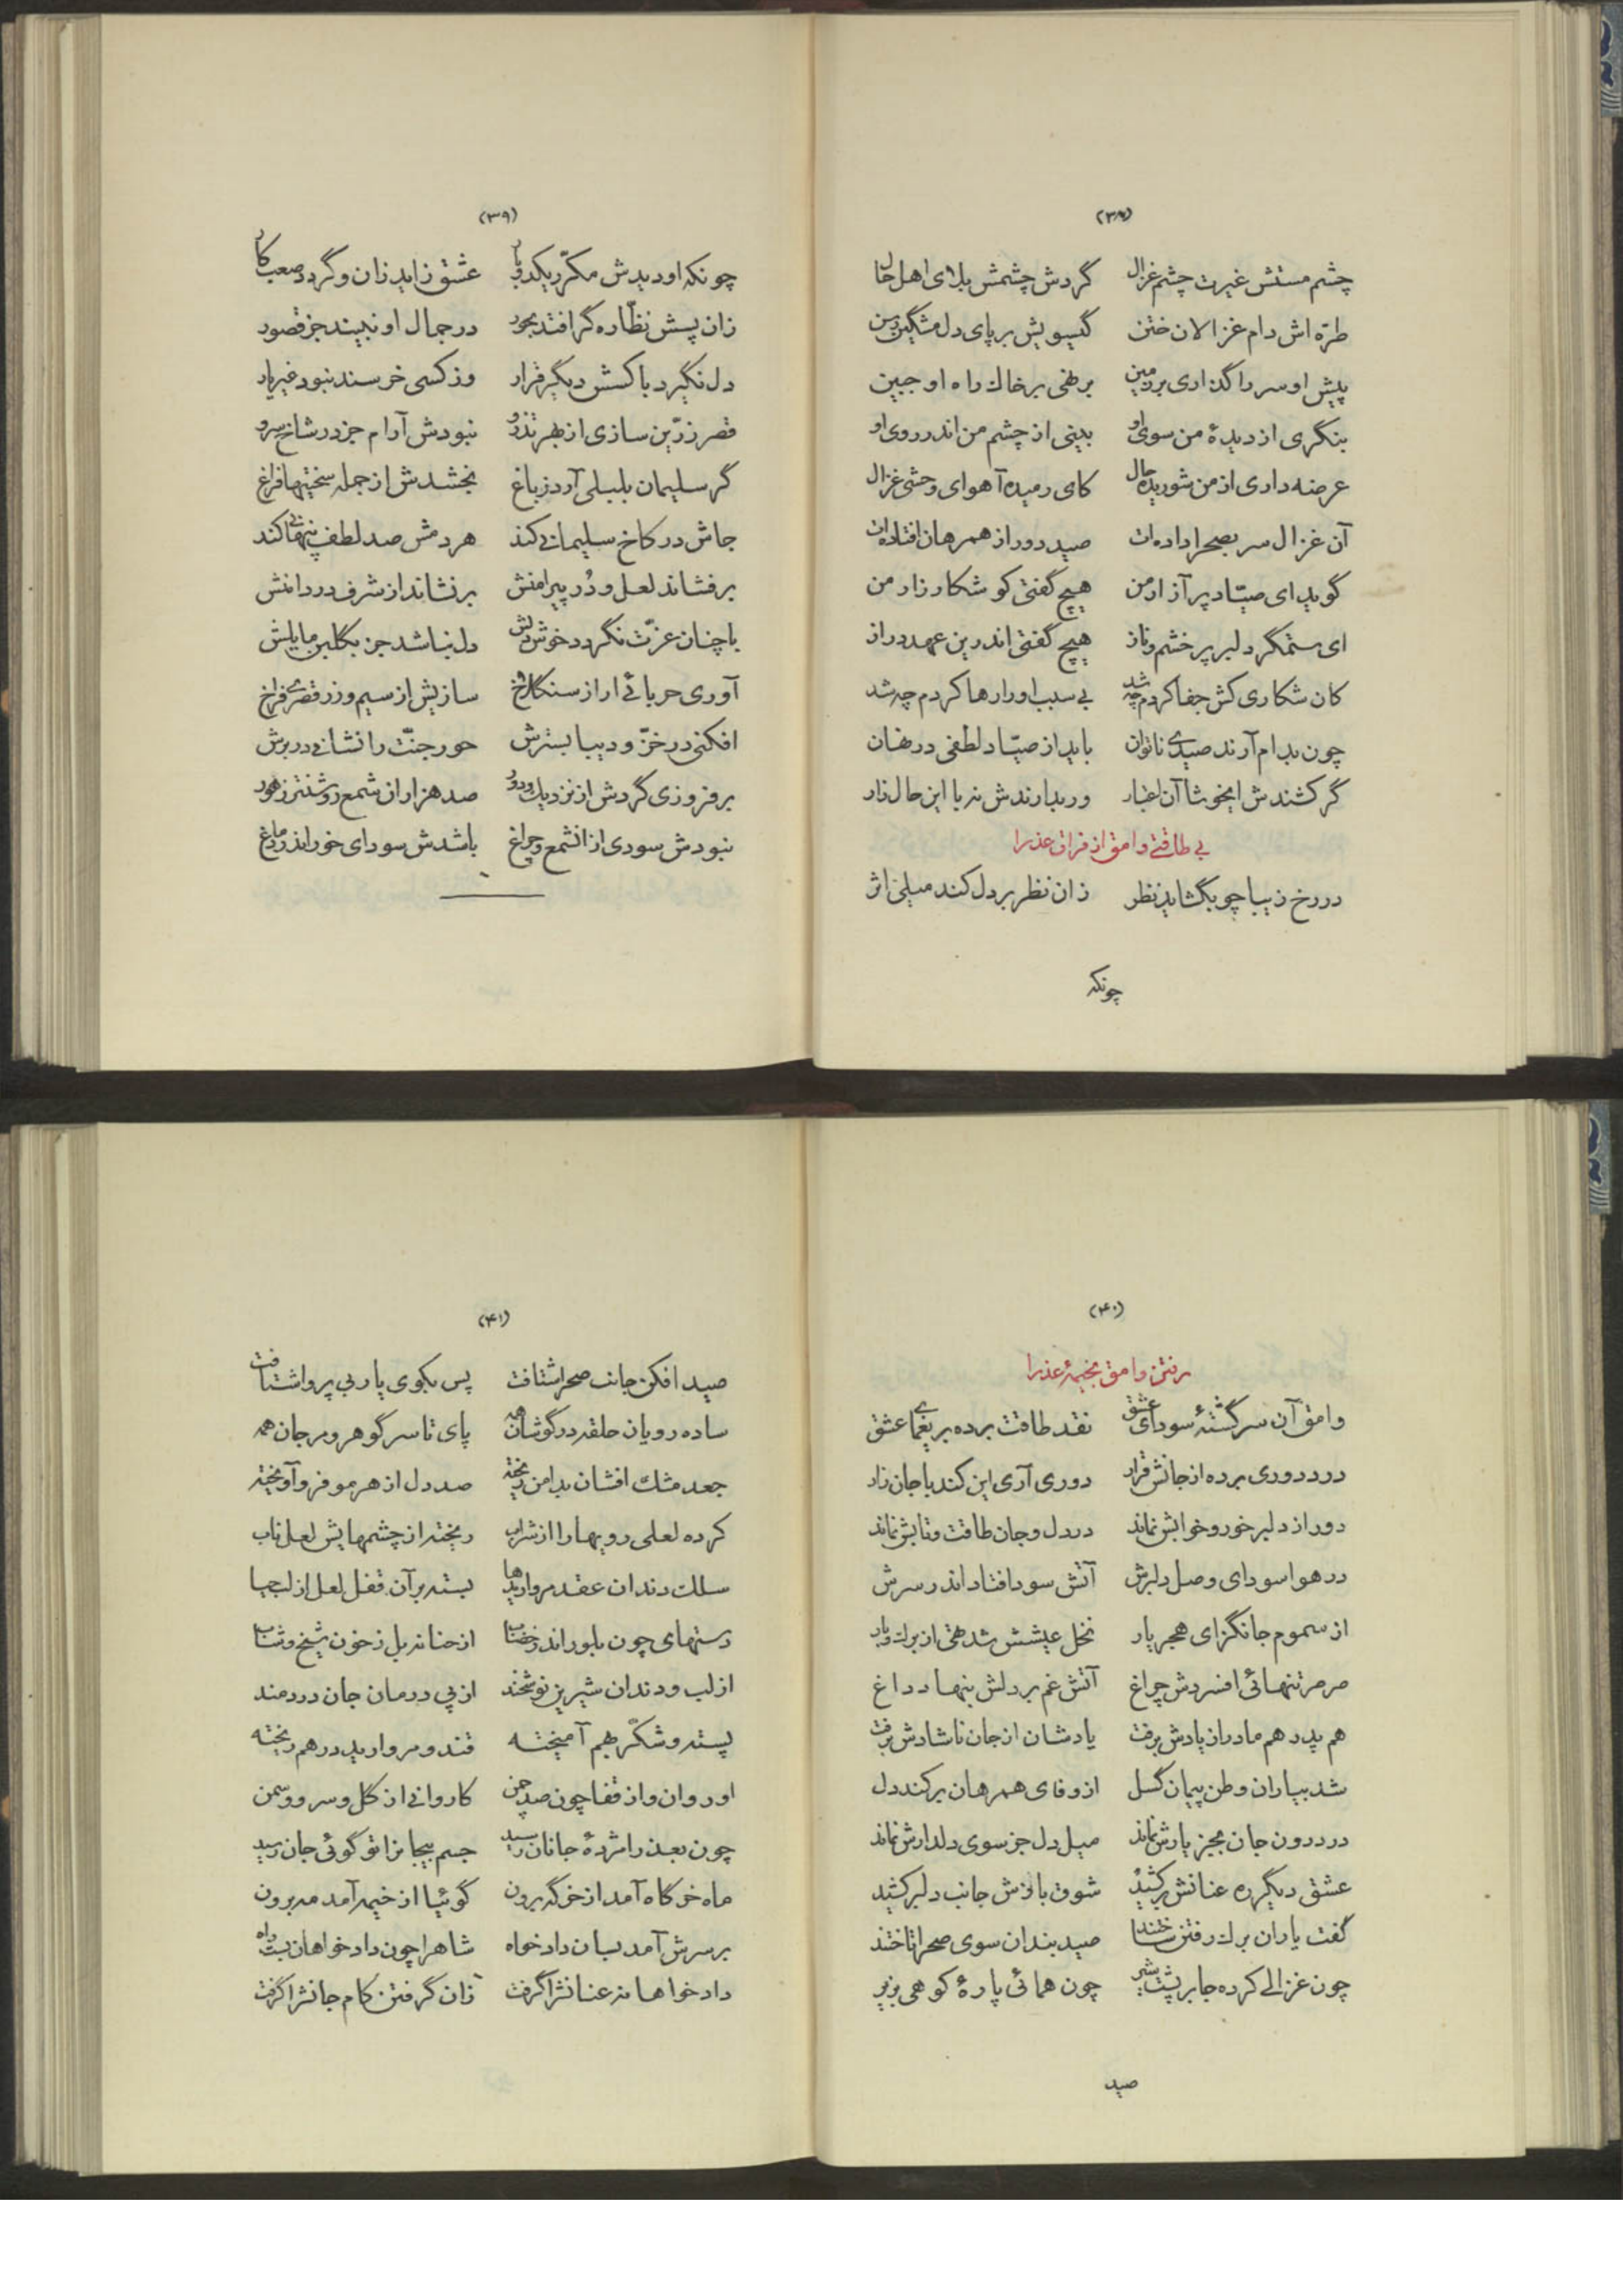 (۳۸)
چشم مستش غیرت چشم غزال گردش چشمش بلای اهل حال
طرّه اش دام غزالان ختن گیسویش بر پای دل مشگین رسن
پیش او سر را گذاری بر زمین برنهی بر خاك راه او جبین
بنگری از دیدهٔ من سوی او بینی از چشم من اندر روی او
عرضه داری از من شوریده حال کای رمیده آهوای وحشی غزال
آن غزال سر بصحرا داده ات صید دور از همرهان افتاده ات
گوید ای صیّاد پر آزار من هیچ گفتی کو شکار زار من
ای ستمگر دلبر پر خشم و ناز هیچ گفتی اندرین عهد دراز
کان شکاری کش جفا کردم چه شد بی سبب او را رها کردم چه شد
چون بدام آرند صیدی ناتوان باید از صیّاد لطفی در نهان
گر کشندش ایخوشا آن اعتبار ور بدارندش نه با این حال زار
بی طاقتی وامق از فراق عذرا
در رخ زیبا چو بگشاید نظر زان نظر بر دل کند میلی اثر
چونکه
(۳۹)
چونکه او دیدش مکرّر یکدو بار عشق زاید زان و گردد صعب کار
زان پسش نظّاره گر افتد بحور در جمال او نبیند جز قصور
دل نگیرد با کسش دیگر قرار وز کسی خرسند نبود غیر یار
قصر زرّین سازی از بهر تذرو نبودش آرام جز در شاخ سرو
گر سلیمان بلبلی آرد ز باغ بخشدش از جمله سختیها فراغ
جاش در کاخ سلیمانی کند هر دمش صد لطف پنهانی کند
برفشاند لعل و دُر پیرامنش برنشاند از شرف در دامنش
با چنان عزّت نگردد خوش دلش دل نباشد جز بگلبن مایلش
آوری حربائی ار از سنگلاخ سازیش از سیم و زر قصری فراخ
افکنی در خزّ و دیبا بسترش حور جنّت را نشانی در برش
برفروزی گردش از نزدیك و دور صد هزاران شمع روشنتر ز هور
نبودش سودی از انشمع و چراغ باشدش سودای خور اندر دماغ
(۴۰)
رفتن وامق بخیمهٔ عذرا
وامق آن سرگشتهٔ سودای عشق نقد طاقت برده بر یغمای عشق
درد دوری برده از جانش قرار دوری آری این کند با جان زار
دور از دلبر خور و خوابش نماند در دل و جان طاقت و تابش نماند
در هوا سودای وصل دلبرش آتش سودا فتاد اندر سرش
از سموم جانگزای هجر یار نخل عیشش شد تهی از برك و بار
صرصر تنهائی افسردش چراغ آتش غم بر دلش بنهاد داغ
هم پدر هم مادر از یادش برفت یادشان از جان ناشادش برفت
شد بیاران وطن پیمان گسل از وفای همرهان برکند دل
در درون جان بجز یارش نماند میل دل جز سوی دلدارش نماند
عشق دیگر ره عنانش برکشید شوق بازش جانب دلبر کشید
گفت یاران برك رفتن ساختند صید بندان سوی صحرا تاختند
چون غزالی کرده جا بر پشت شیر چون همائی پارهٔ کوهی بزیر
صید
(۴۱)
صید افکن جانب صحرا شتافت پس بکوی یار بی پروا شتافت
ساده رویان حلقه در گوشان همه پای تا سر گوهر و مرجان همه
جعد مشك افشان بدامن ریخته صد دل از هر مو فرو آویخته
کرده لعلی رویها را از شراب ریخته از چشمهایش لعل ناب
سلك دندان عقد مرواریدها بسته بر آن قفل لعل از لب جیا
دستهای چون بلور اندر خضاب از حنا نه بل ز خون شیخ و شاب
از لب و دندان شیرین نوشخند از پی درمان جان دردمند
پسته و شکّر بهم آمیخته قند و مروارید در هم ریخته
او روان و از قفا چون صد چمن کاروانی از گل و سرو و سمن
چون بعذرا مژدهٔ جانان رسید جسم بیجانرا تو گوئی جان رسید
ماه خرگاه آمد از خرگه برون گوئیا از خیمه آمد مه برون
بر سرش آمد بسان داد خواه شاهرا چون داد خواهان بست راه
داد خواهانه عنانشرا گرفت زان گرفتن کام جانشرا گرفت